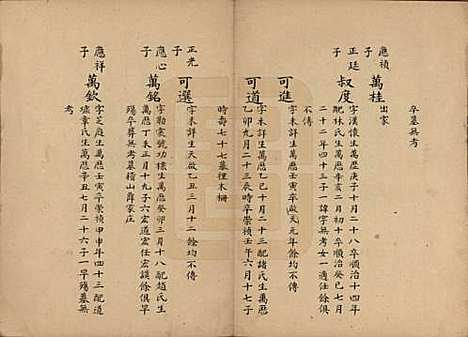 卒墓無考
應禎子
萬桂
出家
正廷子
叔度
字漢懷生萬歷庚子十月二十八卒順治十四年
配林氏生萬歷辛亥二月初十卒順治癸巳七月
二十二年四十三子一諱字無考女一適任餘俱
不傳
可進
字未詳生萬歷壬寅卒啟天元年餘均不傳
可道
字未詳生萬歷乙巳十月二十三配諸氏生萬歷
乙卯九月二十三辰時卒崇禎壬年六月十七子
時壽七十七墓徑木柵
正光子
可選
字未詳生天啟乙丑三月十二餘均不傳
應心子
萬銘
字勒宸號功懷生萬歷癸卯三月十八配趙氏生
萬歷丁未正月十九子六宏道宏任宏謨餘俱早
殤卒葬無考墓稽山薛家庄
應祥子
萬欽
字芝庭生萬歷壬寅卒崇禎甲申年四十三配道
墟章氏生萬歷辛丑七月二十六子一早殤墓無
考